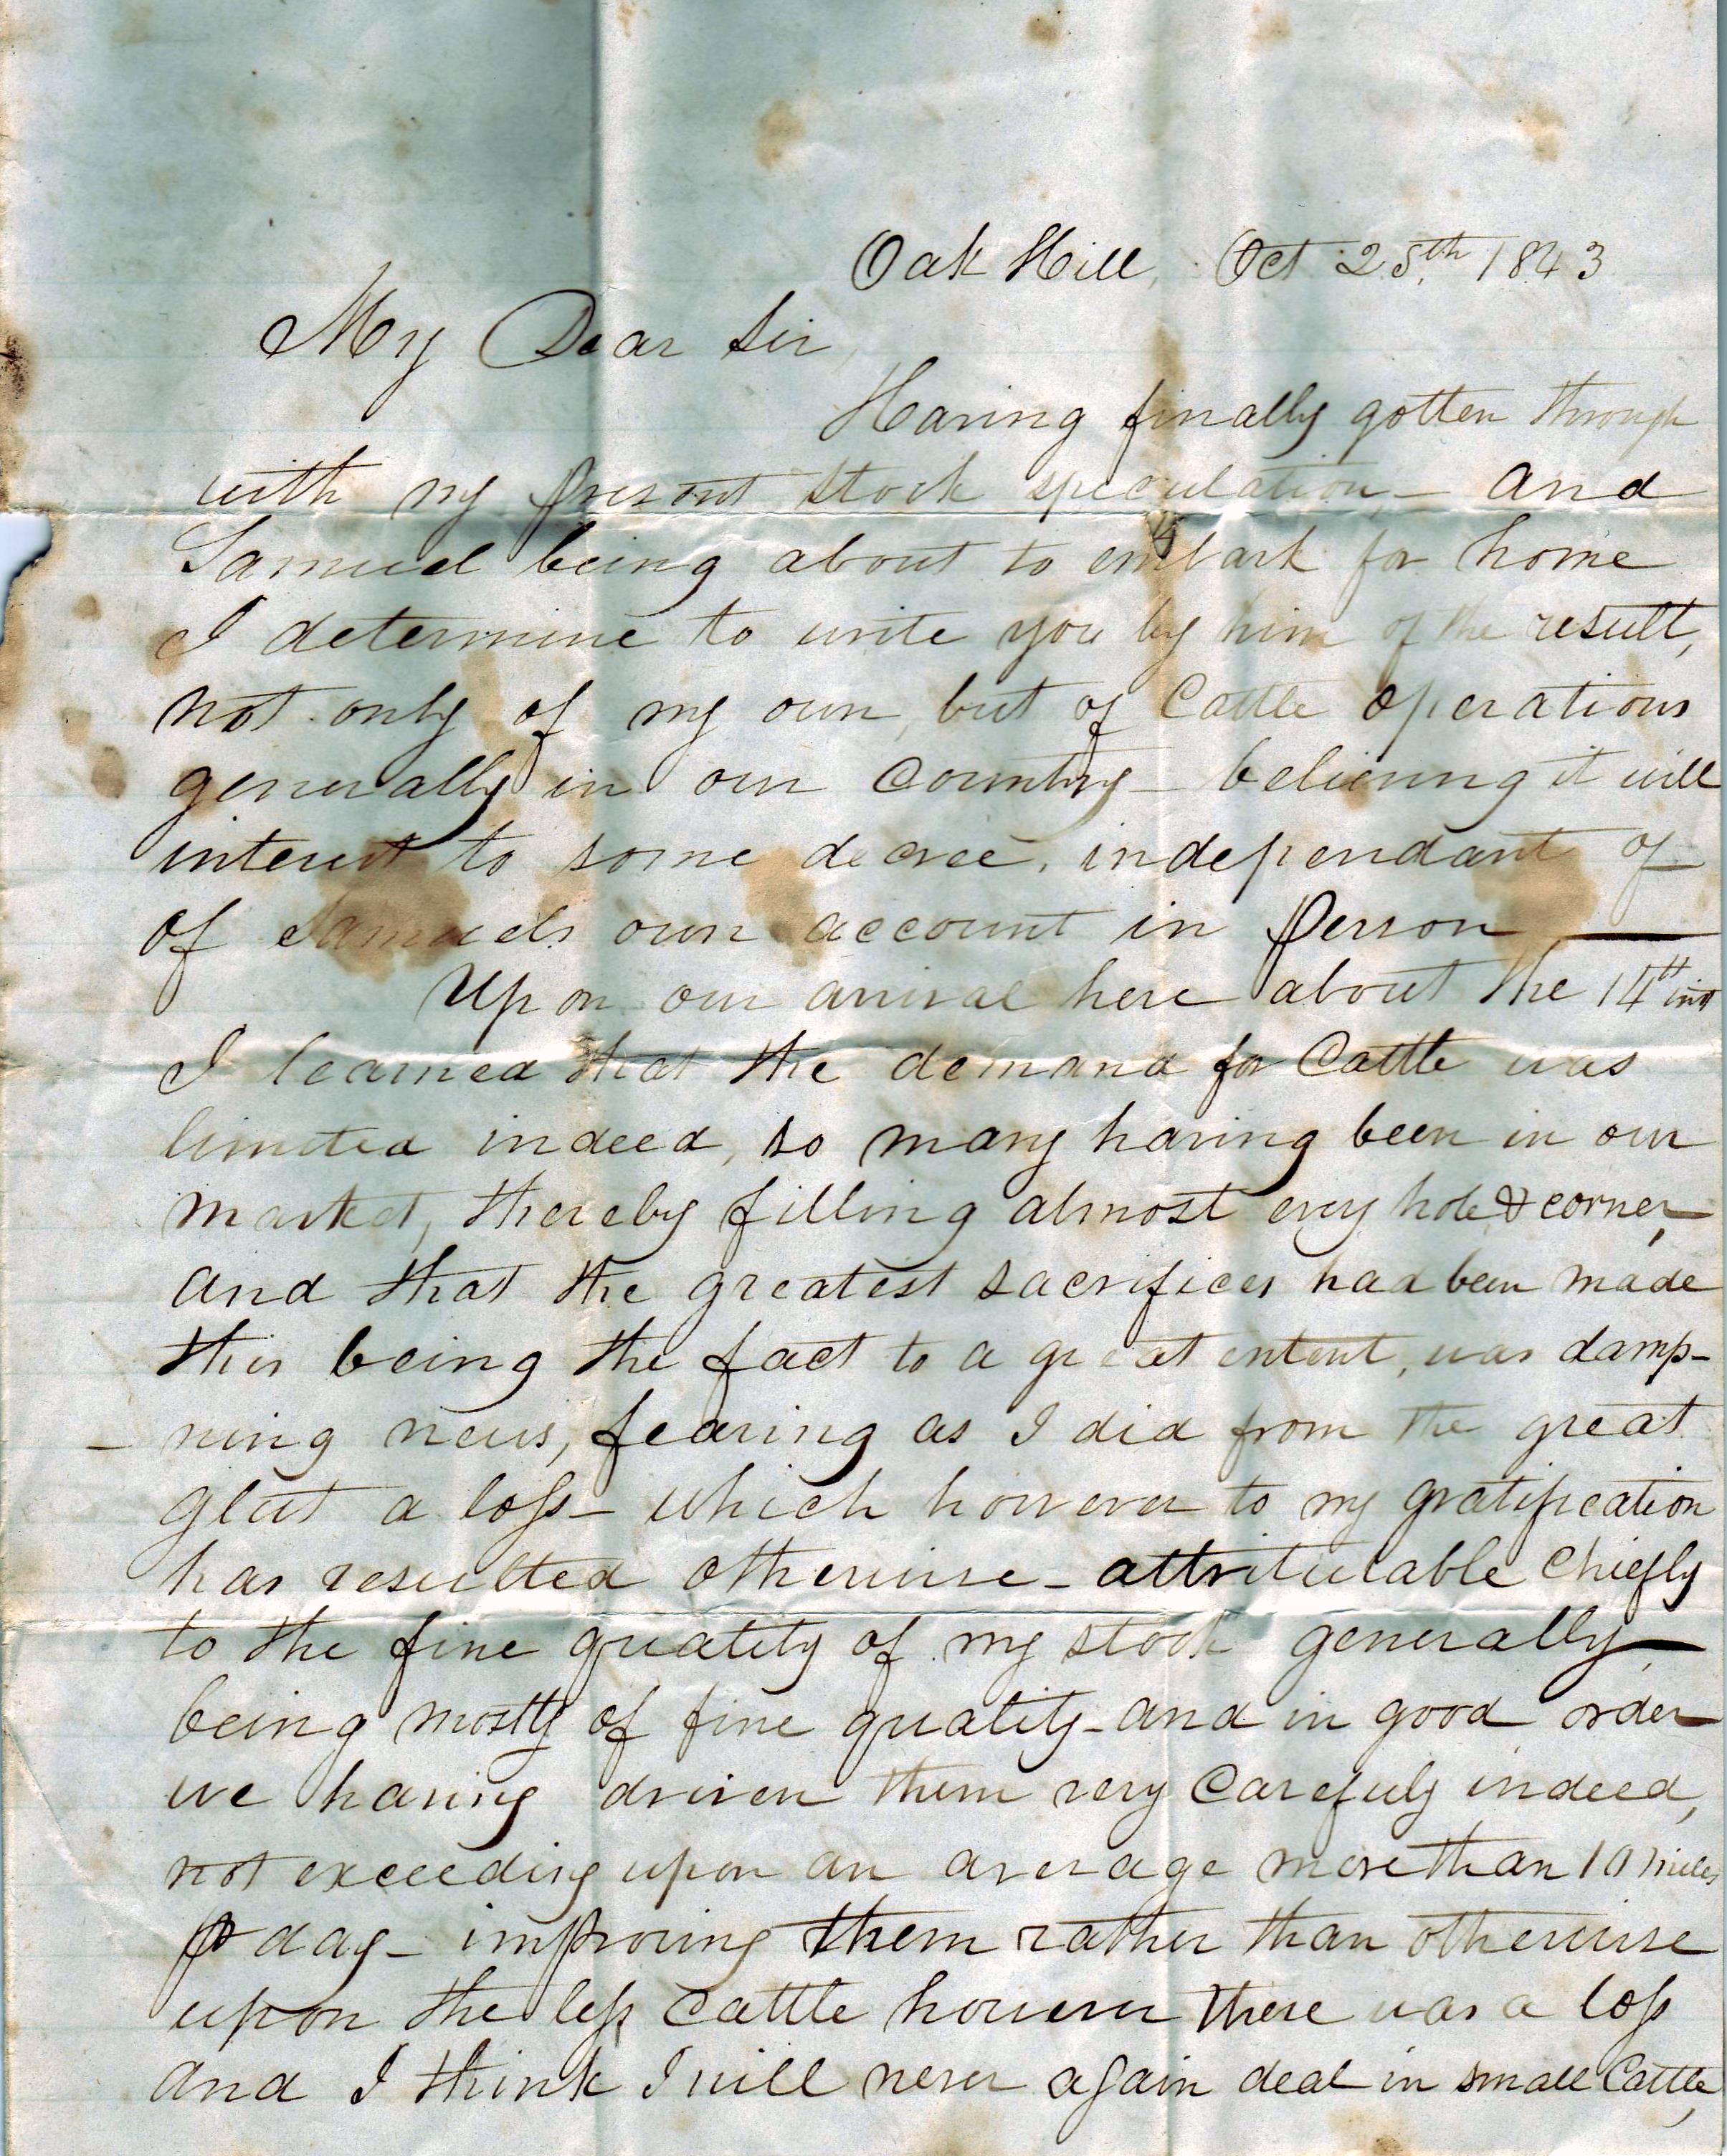 Oak Hill, Oct 25th 1843
My Dear Sir,
Having finally gotten through
with my present stock speculation – and
Samuel being about to embark for home
I determine to write you by him of the result,
not only of my own, but of Cattle operations
generally in our Country – believing it will
interest to some decree, independant of
of Samuels own account in person —
Upon our arrival here about the 14th inst
I learned that the demand for Cattle was
limited indeed, so many having been in our
market, thereby filling almost evry hole & corner,
and that the greatest sacrifices had been made
this being the fact to a great extent, was damp-
- ning news, fearing as I did from the great
glut a loss – which however to my gratification
has resulted otherwise – attributable chiefly
to the fine quality of my stock generally –
being mostly of fine quality – and in good order
we having driven them very carefuly indeed,
not exceeding upon an average more than 10 miles
⅌ day – improving them rather than otherwise
upon the less cattle however there was a loss
and I think I will never again deal in small Cattle,